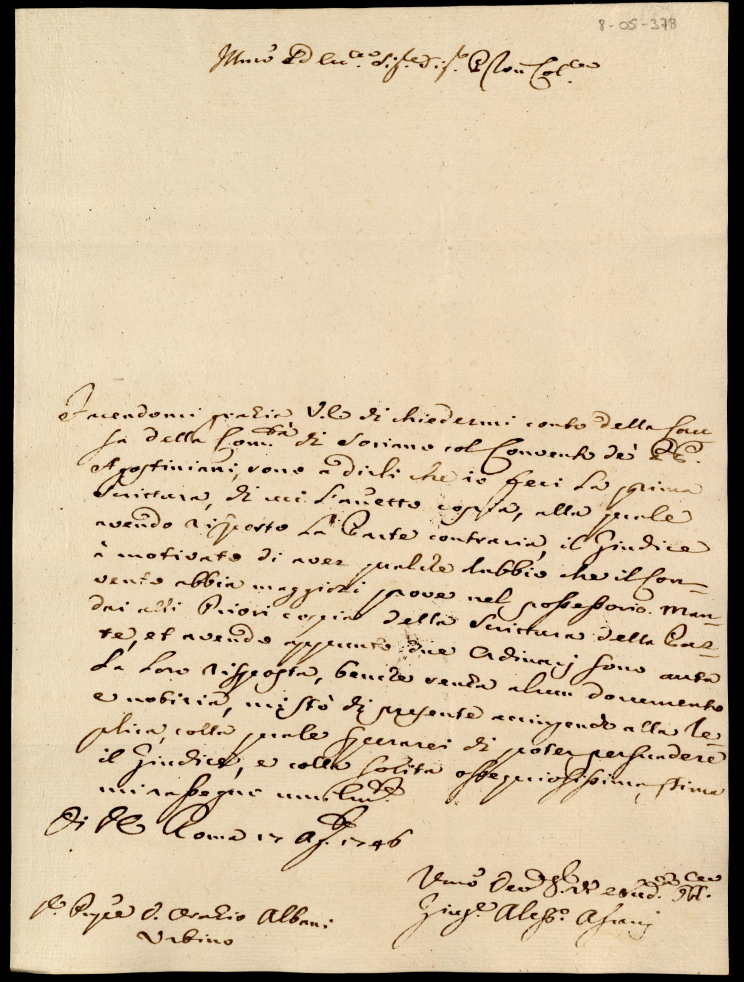 8-05-378
Illmo Ed Ecc.mo Sig.re Sig.re P(ad)ron Col.mo
Facendomi grazia V.E. di chiedermi conto della Cau=
sa della Com.tà di Soriano col Convento de' PP.
Agostiniani, sono a dirli che io feci la prima
Scrittura, di cui l'annetto coppia, alla quale
avendo risposto la Parte contraria, il Giudice
à motivato di aver qualche dubbio che il Con=
vento abbia maggiori prove nel possessorio. Man=
dai alli Priori coppia della Scrittura della Par=
te, et avendo appunto due Ordinarj sono avuta
la loro risposta, benche senza alcun documento
e notizia, mi stò di presente accingendo alla Re=
plica, colla quale sperarei di poter persuadere
il Giudice, e colla solita ossequiosissima stima
mi rassegno umilm.te
Di V.E. Roma 17 Ag. 1746
Umo Devmo
Alessº
Sr Prnpe D. Orazio Albani
Urbino